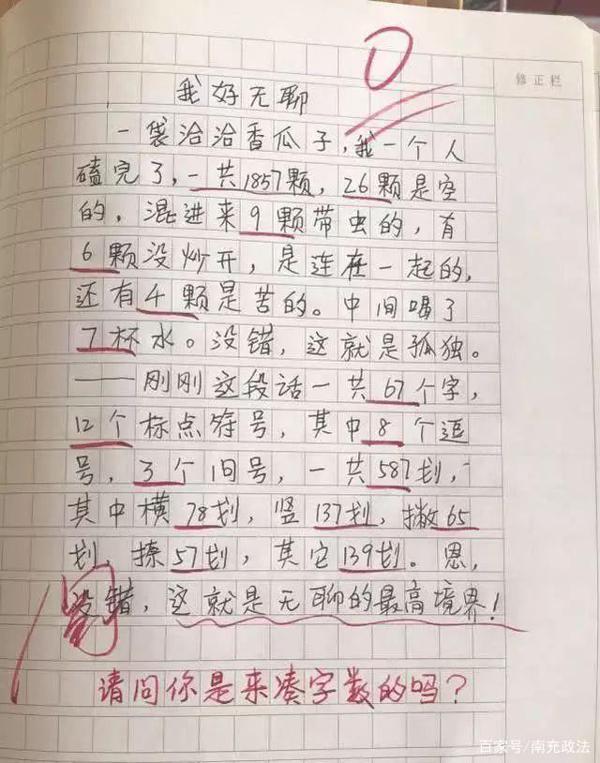 0
修正栏
我好无聊
一袋洽洽香瓜子,我一个人
磕完了,一共1857颗,26颗是空
的,混进来9颗带虫的,有
6颗没炒开,是连在一起的,
还有4颗是苦的。中间喝了
7杯水。没错,这就是孤独。
——刚刚这段话一共67个字,
12个标点符号,其中8个逗
号,3个旧号,一共587划,
其中横78划,竖137划,撇65
划,捺57划,其它139划。恩,
没错,这就是无聊的最高境界!
请问你是来凑字数的吗?
百家号/南充政法